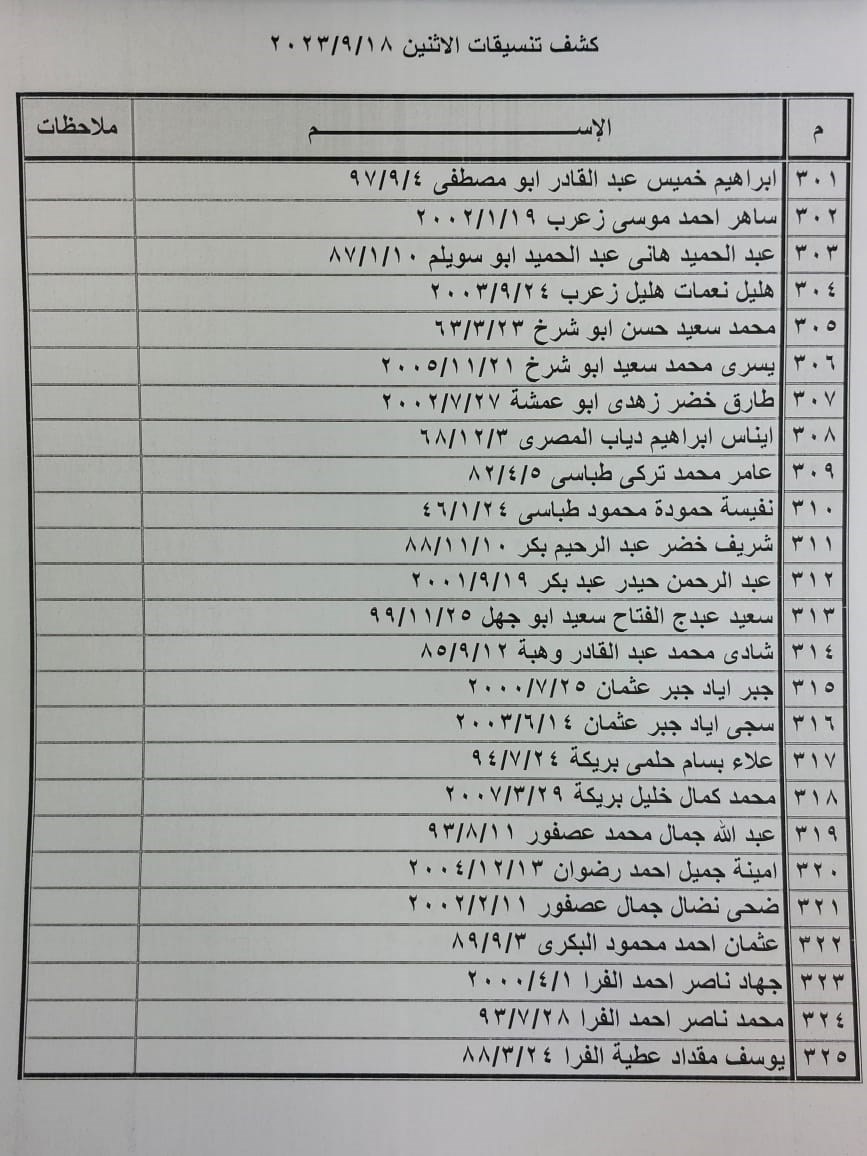 كشف تنسيقات الاثنين ٢٠٢٣/٩/١٨
م الإســـــــــــــــــــــــم ملاحظات
٣٠١ ابراهيم خميس عبد القادر ابو مصطفى ٩٧/٩/٤
٣٠٢ ساهر احمد موسى زعرب ٢٠٠٢/١/١٩
٣٠٣ عبد الحميد هانى عبد الحميد ابو سويلم ٨٧/١/١٠
٣٠٤ هليل نعمات هليل زعرب ٢٠٠٣/٩/٢٤
٣٠٥ محمد سعيد حسن ابو شرخ ٦٣/٣/٢٣
٣٠٦ يسرى محمد سعيد ابو شرخ ٢٠٠٥/١١/٢١
٣٠٧ طارق خضر زهدى ابو عمشة ٢٠٠٢/٧/٢٧
٣٠٨ ايناس ابراهيم دياب المصرى ٦٨/١٢/٣
٣٠٩ عامر محمد تركى طباسى ٨٢/٤/٥
٣١٠ نفيسة حمودة محمود طباسى ٤٦/١/٢٤
٣١١ شريف خضر عبد الرحيم بكر ٨٨/١١/١٠
٣١٢ عبد الرحمن حيدر عبد بكر ٢٠٠١/٩/١٩
٣١٣ سعيد عبدج الفتاح سعيد ابو جهل ٩٩/١١/٢٥
٣١٤ شادى محمد عبد القادر وهبة ٨٥/٩/١٢
٣١٥ جبر اياد جبر عثمان ٢٠٠٠/٧/٢٥
٣١٦ سجى اياد جبر عثمان ٢٠٠٣/٦/١٤
٣١٧ علاء بسام حلمى بريكة ٩٤/٧/٢٤
٣١٨ محمد كمال خليل بريكة ٢٠٠٧/٣/٢٩
٣١٩ عبد الله جمال محمد عصفور ٩٣/٨/١١
٣٢٠ امينة جميل احمد رضوان ٢٠٠٤/١٢/١٣
٣٢١ ضحى نضال جمال عصفور ٢٠٠٢/٢/١١
٣٢٢ عثمان احمد محمود البكرى ٨٩/٩/٣
٣٢٣ جهاد ناصر احمد الفرا ٢٠٠٠/٤/١
٣٢٤ محمد ناصر احمد الفرا ٩٣/٧/٢٨
٣٢٥ يوسف مقداد عطية الفرا ٨٨/٣/٢٤